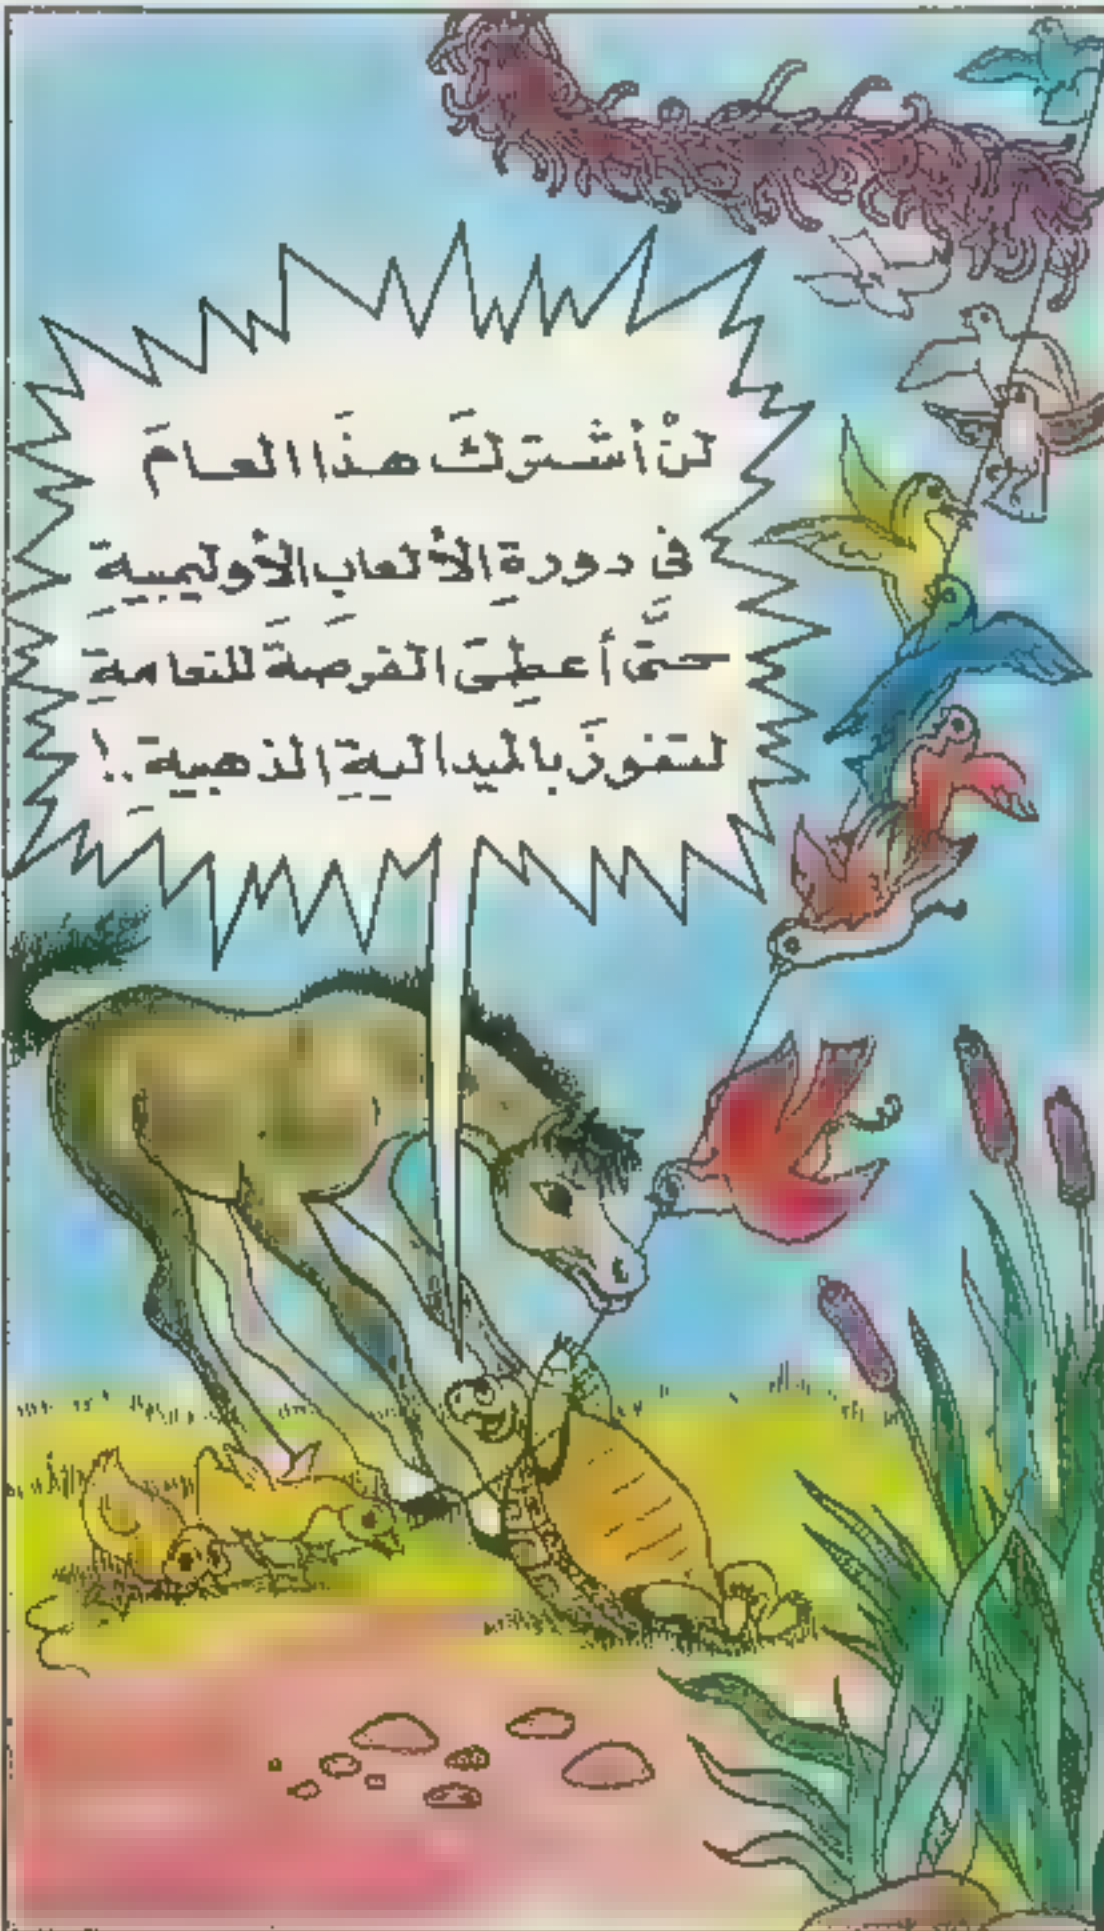 لنْ أشْتركَ هذَا العامَ
فى دورةِ الألعابِ الأوليمبيةِ
حتَّى أعطِىَ الفرصةَ للنعامةِ
لتفوزَ بالميداليةِ الذهبيةِ ..!